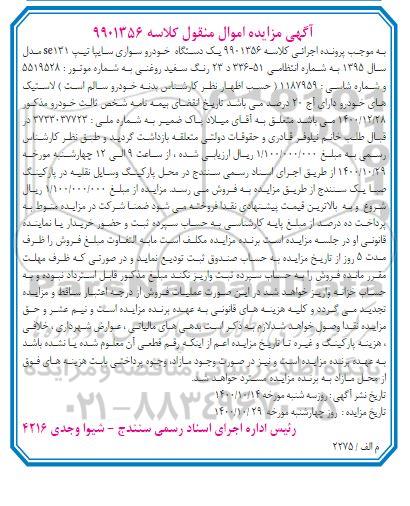 آگهی مزایده اموال منقول کلاسه ۹۹۰۱۳۵۶
به موجب پرونده اجرائی کلاسه ۹۹۰۱۳۵۶ یک دستگاه خودرو سواری سایپا تیپ se۱۳۱ مدل
سال ۱۳۹۵ به شماره انتظامی ۵۱-۳۳۶ د ۲۳ رنگ سفید روغنی به شماره موتور : ۵۵۱۹۵۲۸
و شماره شاسی : ۱۱۸۷۹۵۹ ( حسب اظهار نظر کارشناس بدنه خودرو سالم است ) لاستیک
های خودرو دارای آج ۲۰ درصد می باشد تاریخ انقضای بیمه نامه شخص ثالث خودرو مذکور
۱۴۰۰/۱۲/۲۸ می باشد متعلق به آقای میلاد پاک ضمیر به شماره ملی : ۳۷۳۳۰۳۷۷۲۳ در
قبال طلب خانم نیلوفر قادری و حقوقات دولتی متعلقه بازداشت گردید و طبق نظر کارشناس
رسمی به مبلغ ۱/۱۰۰/۰۰۰/۰۰۰ ریال ارزیابی شده ، از ساعت ۹ الی ۱۲ چهارشنبه مورخه
۱۴۰۰/۱۰/۲۹ از طریق اجرای اسناد رسمی سنندج در محل پارکینگ وسایل نقلیه در پارکینگ
صبا یک سنندج از طریق مزایده به فروش می رسد. مزایده از مبلغ ۱/۱۰۰/۰۰۰/۰۰۰ ریال
شروع و به بالاترین قیمت پیشنهادی نقدا فروخته می شود ضمنا شرکت در مزایده منوط به
پرداخت ده درصد از مبلغ پایه کارشناسی به حساب سپرده ثبت و حضور خریدار یا نماینده
قانونی او در جلسه مزایده است برنده مزایده مکلف است مابه التفاوت مبلغ فروش را ظرف
مدت ۵ روز از تاریخ مزایده به حساب صندوق ثبت تودیع نماید و در صورتی که ظرف مهلت
مقرر مانده فروش را به حساب سپرده ثبت واریز نکند مبلغ مذکور قابل استرداد نبوده و به
حساب خزانه واریز خواهد شد در این صورت عملیات فروش از درجه اعتبار ساقط و مزایده
تجدید می گردد و کلیه هزینه های قانونی به عهده برنده مزایده است و نیم عشر و حق
مزایده نقدا وصول خواهد شد لازم به ذکر است بدهی های مالیاتی ، عوارض شهرداری ، خلافی
، هزینه پارکینگ و غیره تا تاریخ مزایده اعم از اینکه رقم قطعی آن معلوم شده یا نشده باشد
به عهده برنده مزایده است و نیز در صورت وجود مازاد، وجوه پرداختی بابت هزینه های فوق
از محل مازاد به برنده مزایده مسترد خواهد شد.
تاریخ نشر آگهی : روز سه شنبه مورخه ۱۴۰۰/۱۰/۱۴
تاریخ مزایده : روز چهارشنبه مورخه ۱۴۰۰/۱۰/۲۹
رئیس اداره اجرای اسناد رسمی سنندج - شیوا وجدی ۴۲۱۶
م الف / ۲۲۷۵